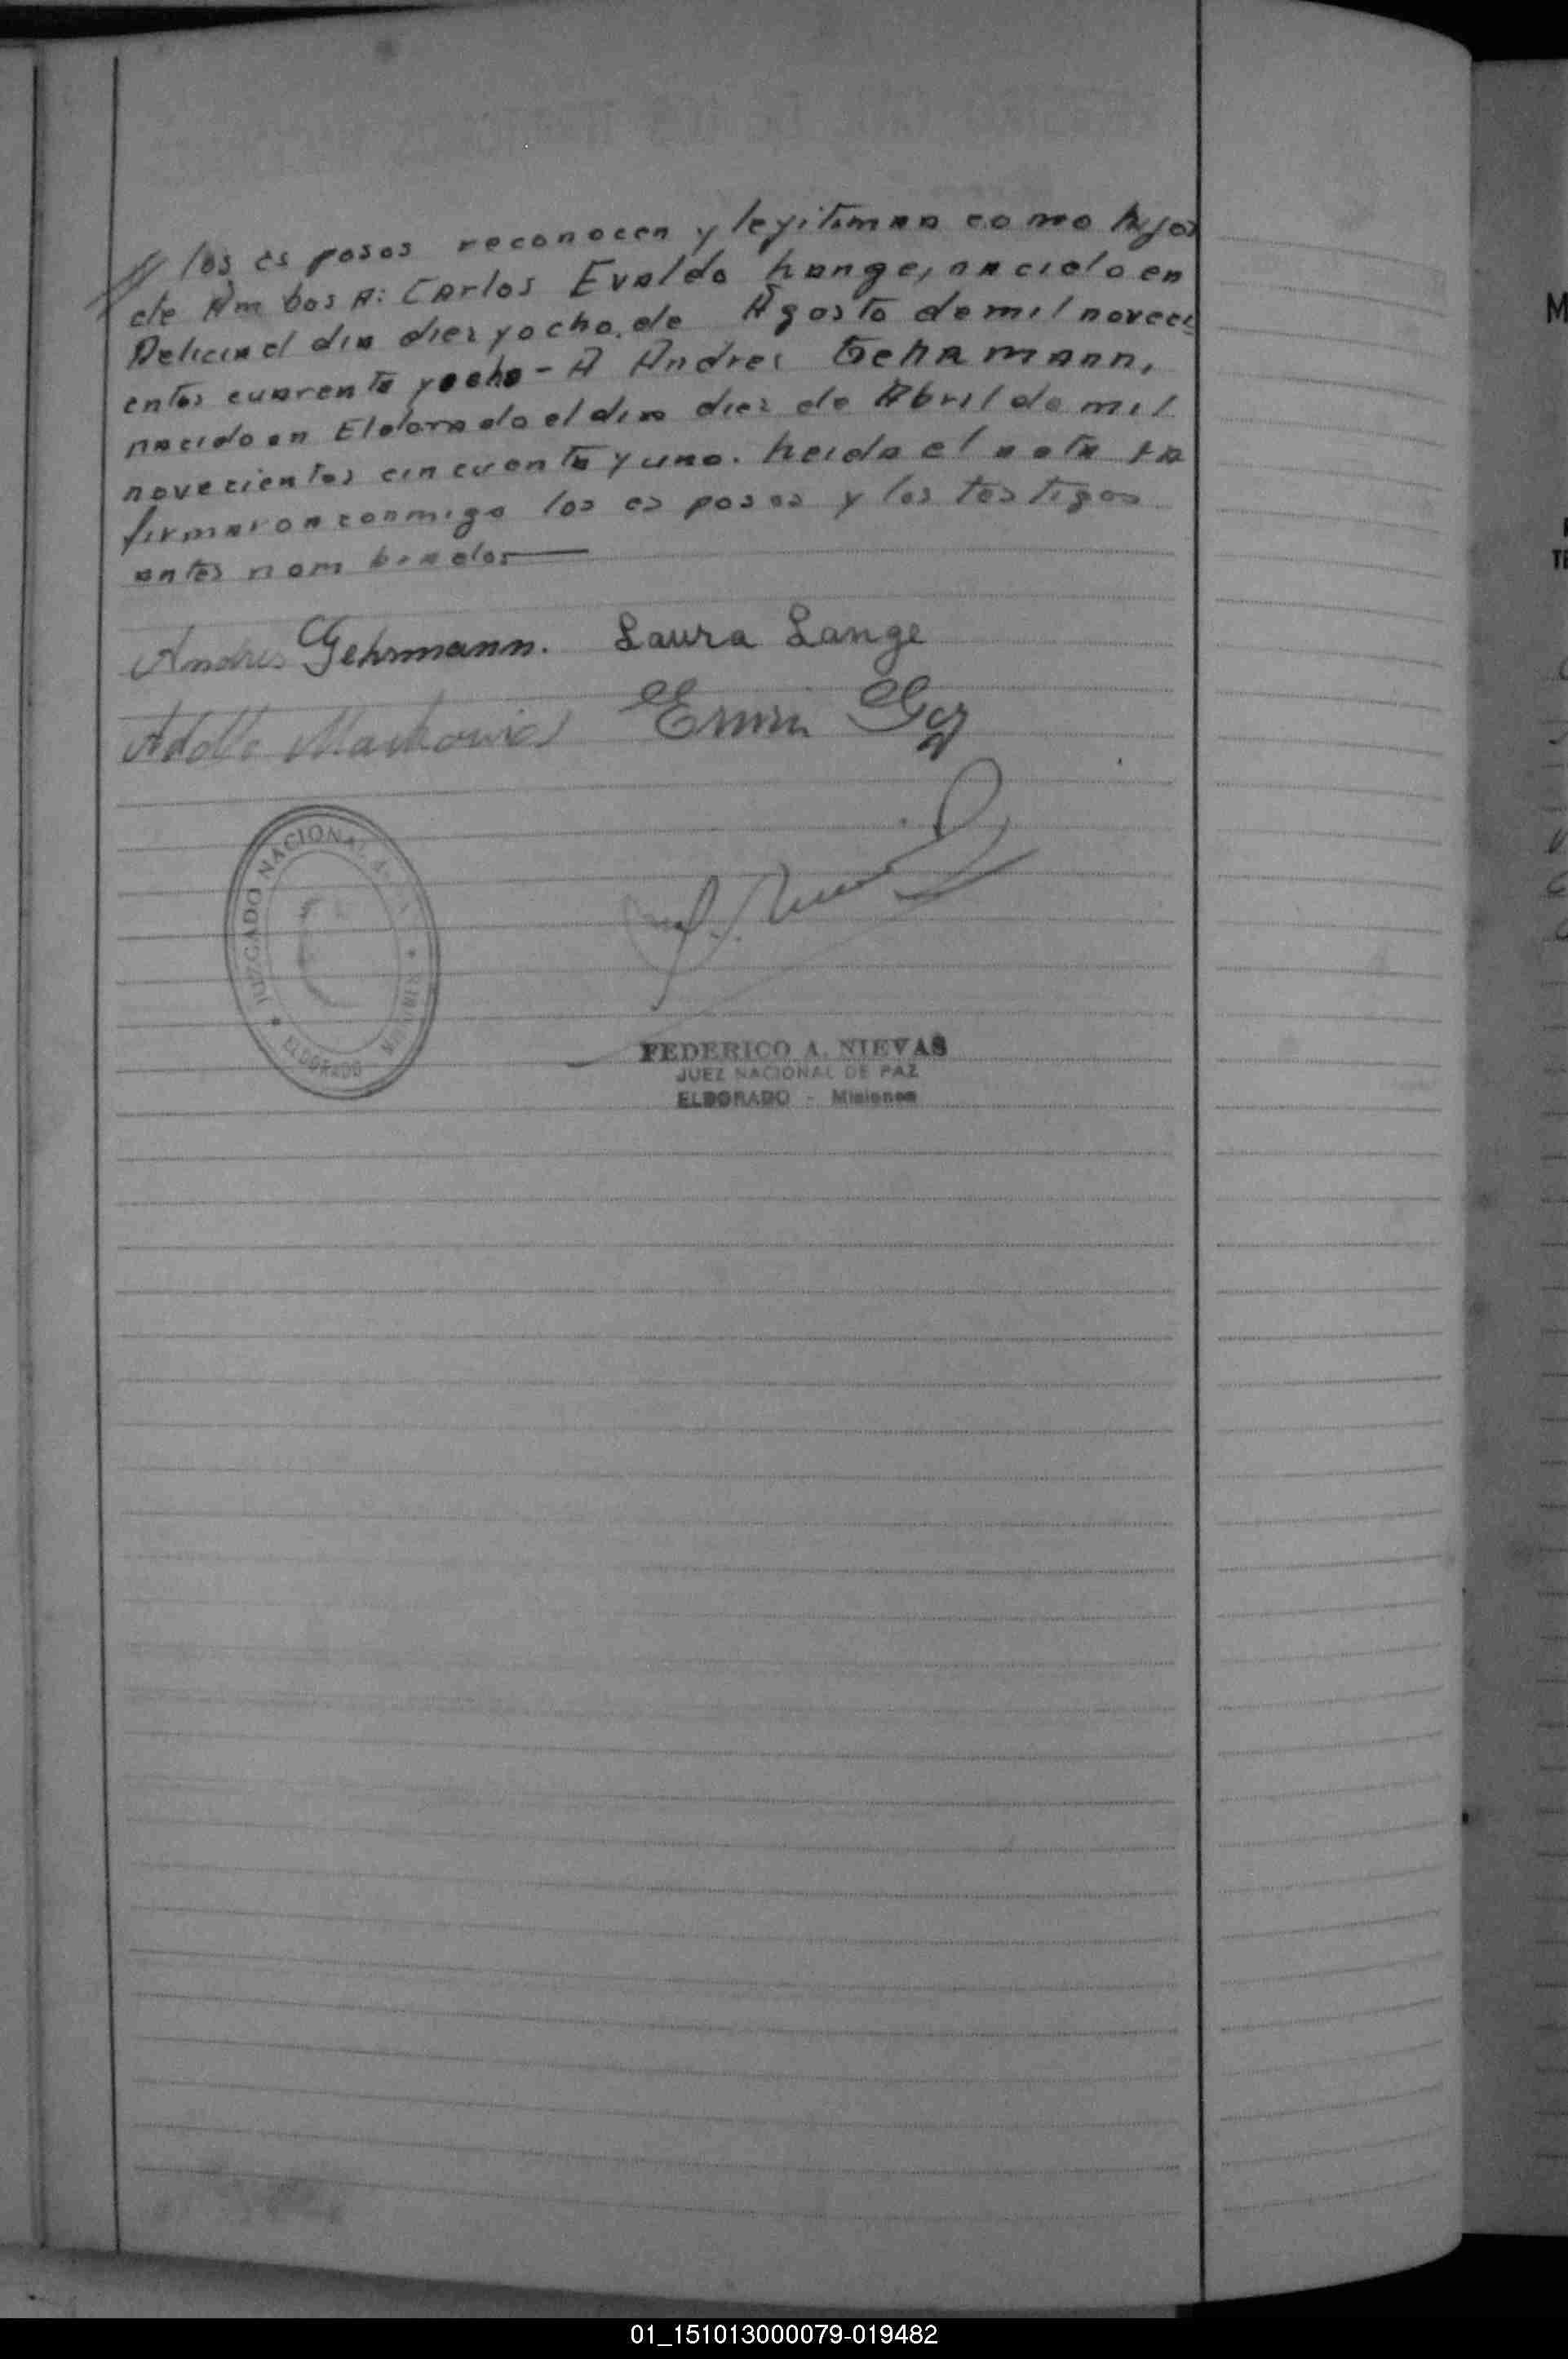 // los esposos reconocen y legitiman como hijos
de Ambos A: Carlos Evaldo Lange, nacido en
Delicia el dia diez y ocho de Agosto de mil noveci
entos cuarenta y ocho - A Andres Gehrmann,
nacido en Eldorado el dia diez de Abril de mil
novecientos cincuenta y uno. Leida el acta la
firmaron conmigo los esposos y los testigos
antes nombrados
Andres Gehrmann. Laura Lange
Adolfo Erwin
JUZGADO NACIONAL
ELDORADO MISIONES
FEDERICO A. NIEVAS
JUEZ NACIONAL DE PAZ
ELDORADO - Misiones
M
01_151013000079-019482